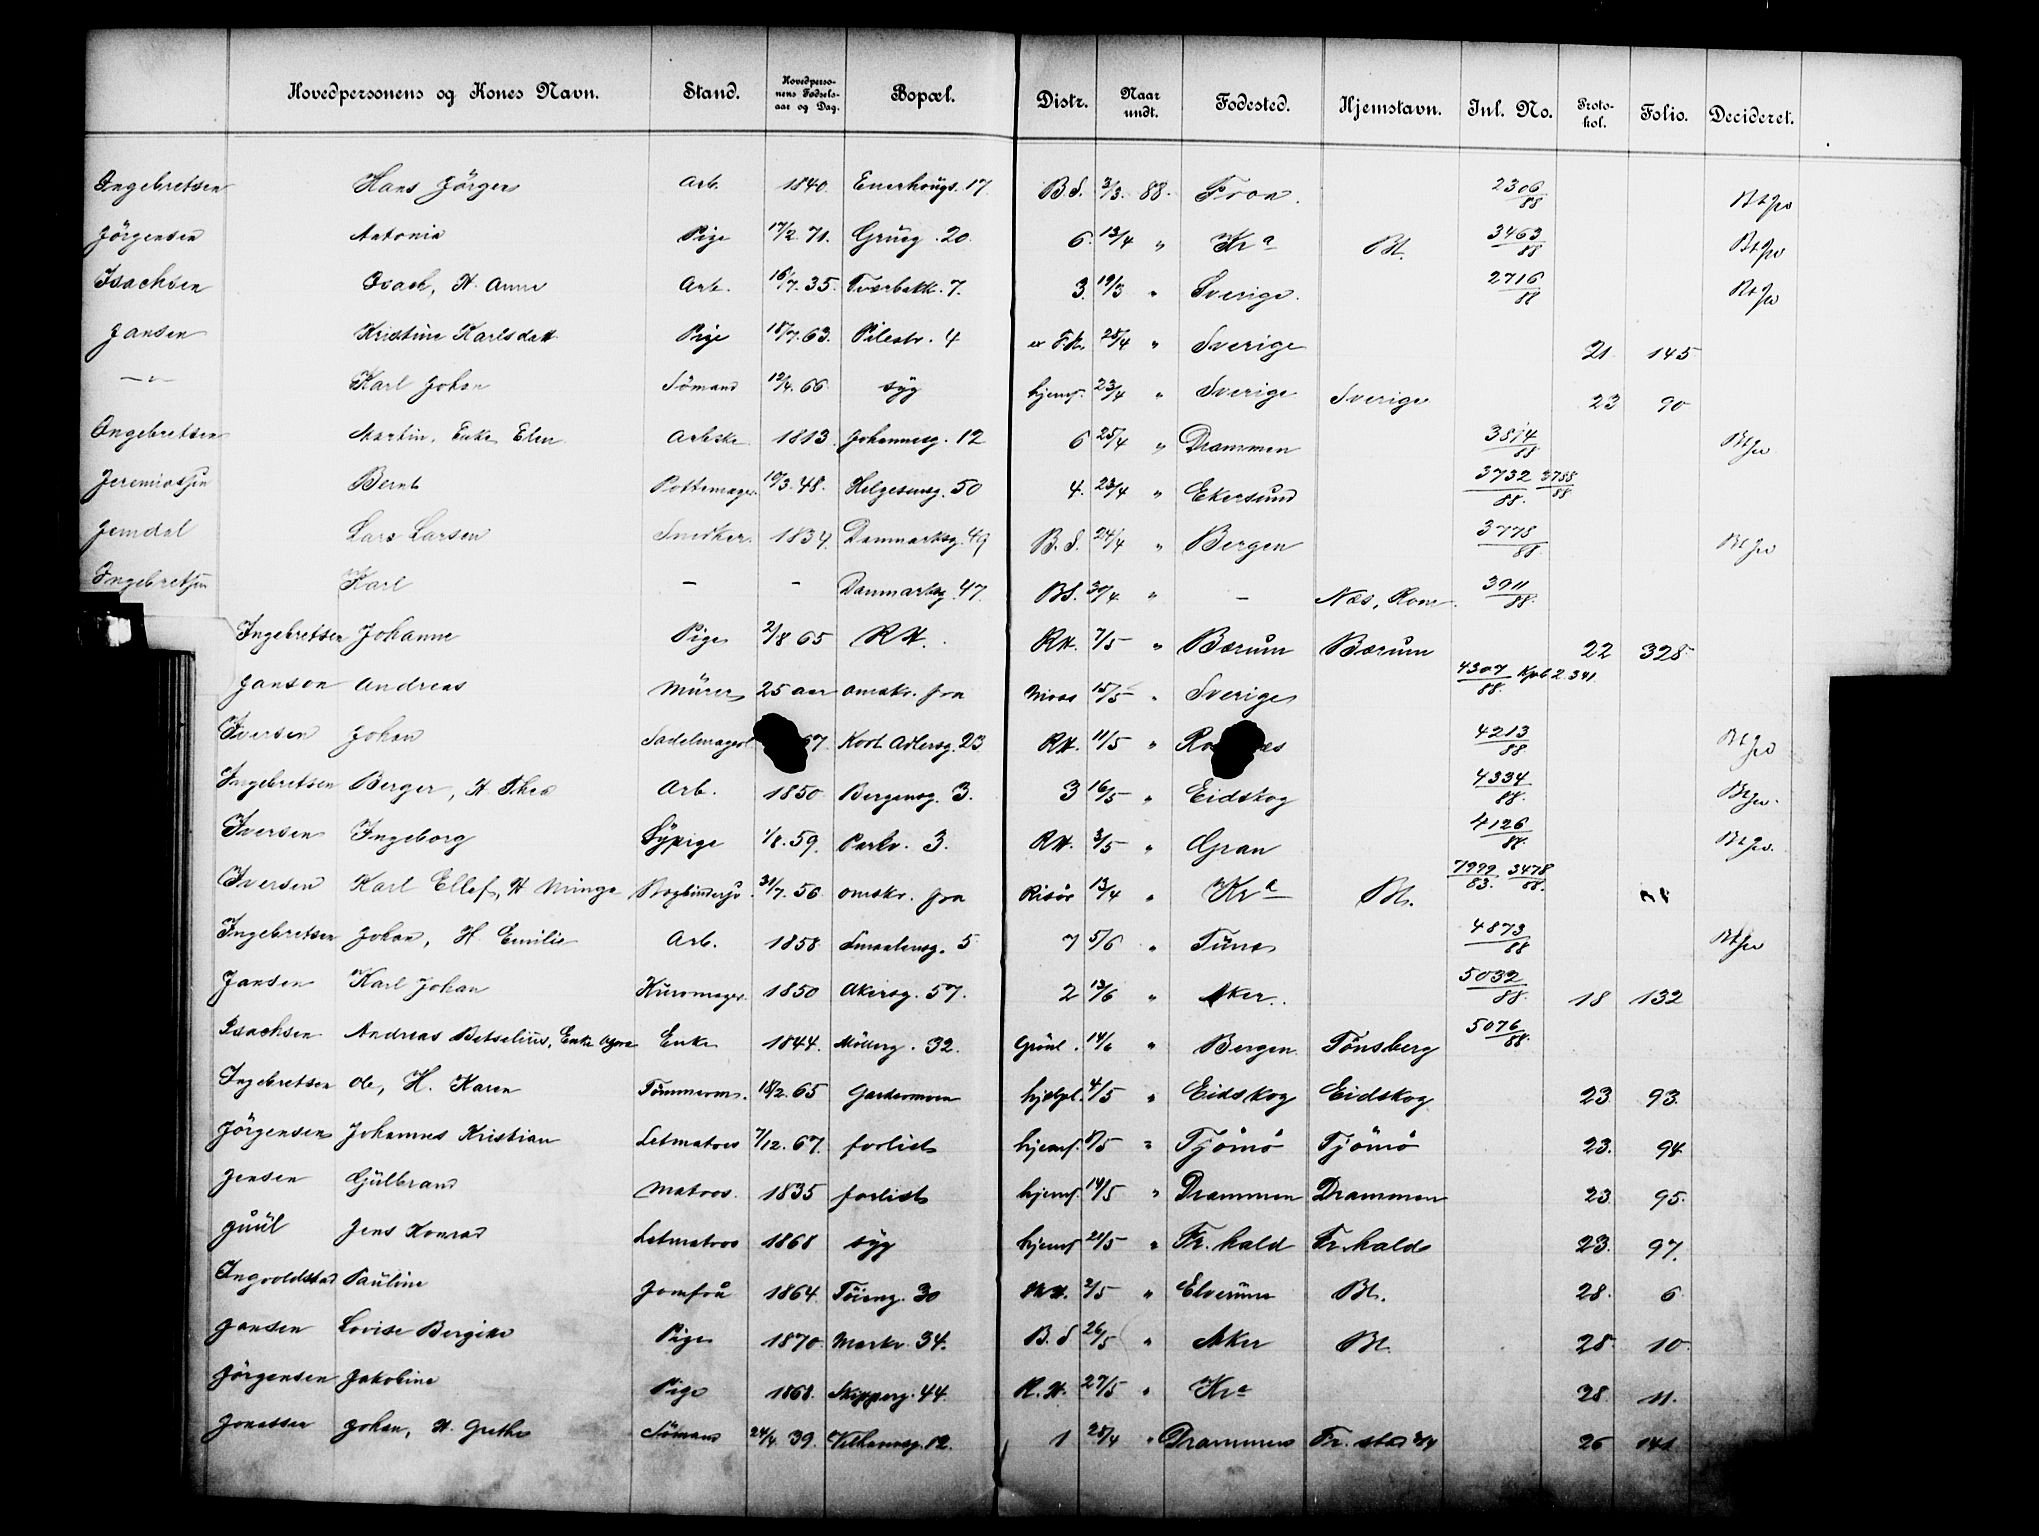 Hovedpersonens og Kones Navn. Stand. Hovedpersonens Fødselsaar og Dag. Bopæl. Distr. Naar undt. Fødested. Hjemstavn. Inl. No. Protokol. Folio. Decideret.
Ingebretsen Hans Jörgen Arb. 1840. Enerhougs. 17. B.S. 3/3. 88. Fron. 2306/88
Jörgensen Antonia Pige 17/2 71. Grüsg. 20. 6. 13/4 " Kra Bt. 3463/88
Isachsen Isach, H. Anne Arb. 16/7. 35. Tværbakk. 7. 3. 19/3 " Sverige. 2716/88
Jansen Kristine Karlsdatt Pige 18/7. 63. Pilestr. 4 25/4 " Sverige 21. 145
—"— Karl Johan Sömand 12/4. 66 syg hjemf. 23/4 " Sverige Sverige 23 90
Ingebretsen Martin, Enke Elen Arbske 1813. Johannesg. 12 6 25/4 " Drammen 3814/88
Jeremiassen Bernt Pottemager 10/3. 48. Helgesensg. 50 4. 23/4 " Ekersund 3732/88 3788/88
Jemdal Lars Larsen Snedker. 1834. Danmarksg. 49 B.S. 24/4 " Bergen 3778/88
Ingebretsen Karl — — Danmarksg. 47. BS. 30/4 " — Næs, Rom. 3911/88.
Ingebretsen Johanne Pige 2/8 65 RH. RH. 7/5 " Bærum Bærum 22 328
Janson Andreas Mürer 25 aar omskr. fra Moss 15/5 " Sverige 4307/88.
Iversen Johan Sadelmager 67. Kort Adlersg. 23 RH. 11/5 " 4213/88.
Ingebretsen Berger, H Thea Arb. 1850. Bergensg. 3. 3 16/5 " Eidskog 4334/88.
Iversen Ingeborg Sypige 1/8. 59. Parkv. 3. RH. 3/5 " Gran 4126/88.
Iversen Karl Ellef, H Minga 31/7. 56 omskr. fra Risör 13/4 " Kra Bt. 7999/83. 3478/88.
Ingebretsen Johan, H. Emilie Arb. 1858. Smaalensg. 5 7 5/6 " Tüne 4873/88
Jansen Karl Johan Küromager 1850 Akersg. 57. 2 13/6 " Aker. 5032/88. 18 132
Isachsen Andreas Betselius, Enke Enke 1844. Möllerg. 32. Grönl. 14/6 " Bergen. Tönsberg 5076/88.
Ingebretsen Ole, H. Karen Tömmerm. 18/2. 65 Gardermoen hjelpl. 4/5 " Eidskog Eidskog 23. 93.
Jörgensen Johannes Kristian Letmatros 7/12. 67. forlist hjemf. 8/5 " Tjömö Tjömö 23. 94.
Jensen Gülbrand Matros. 1835 forlist hjemf. 14/5 " Drammen Drammen 23. 95.
Juül Jens Konrad Letmatros 1868 syg hjemf 21/5 " Fr. hald Fr. hald 23. 97.
Ingvoldstad Pauline Jomfru 1864. Töieng. 30 2/5 " Elverüm Bt. 28. 6.
Jansen Lovise Bergitte Pige 1870. Markv. 34. B.S 26/5 " Aker Bt. 28. 10.
Jörgensen Jakobine Pige 1868. Skipperg. 44. R.H. 27/5 " Kra 28. 11.
Jonassen Johan, H. Grethe Sömand 24/4 39. 12. 1 28/4 " Drammen Fr. stad 26